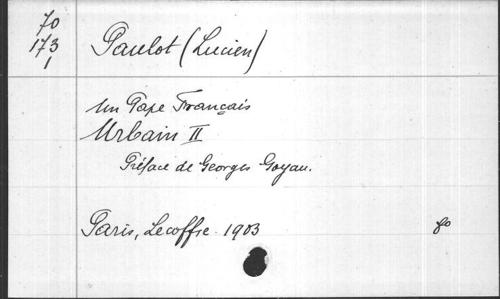 70
173
1
Paulot (Lucien)
Un Pape Français
Urbain II
Préface de Georges Goyau.
Paris, Lecoffre 1903 8o